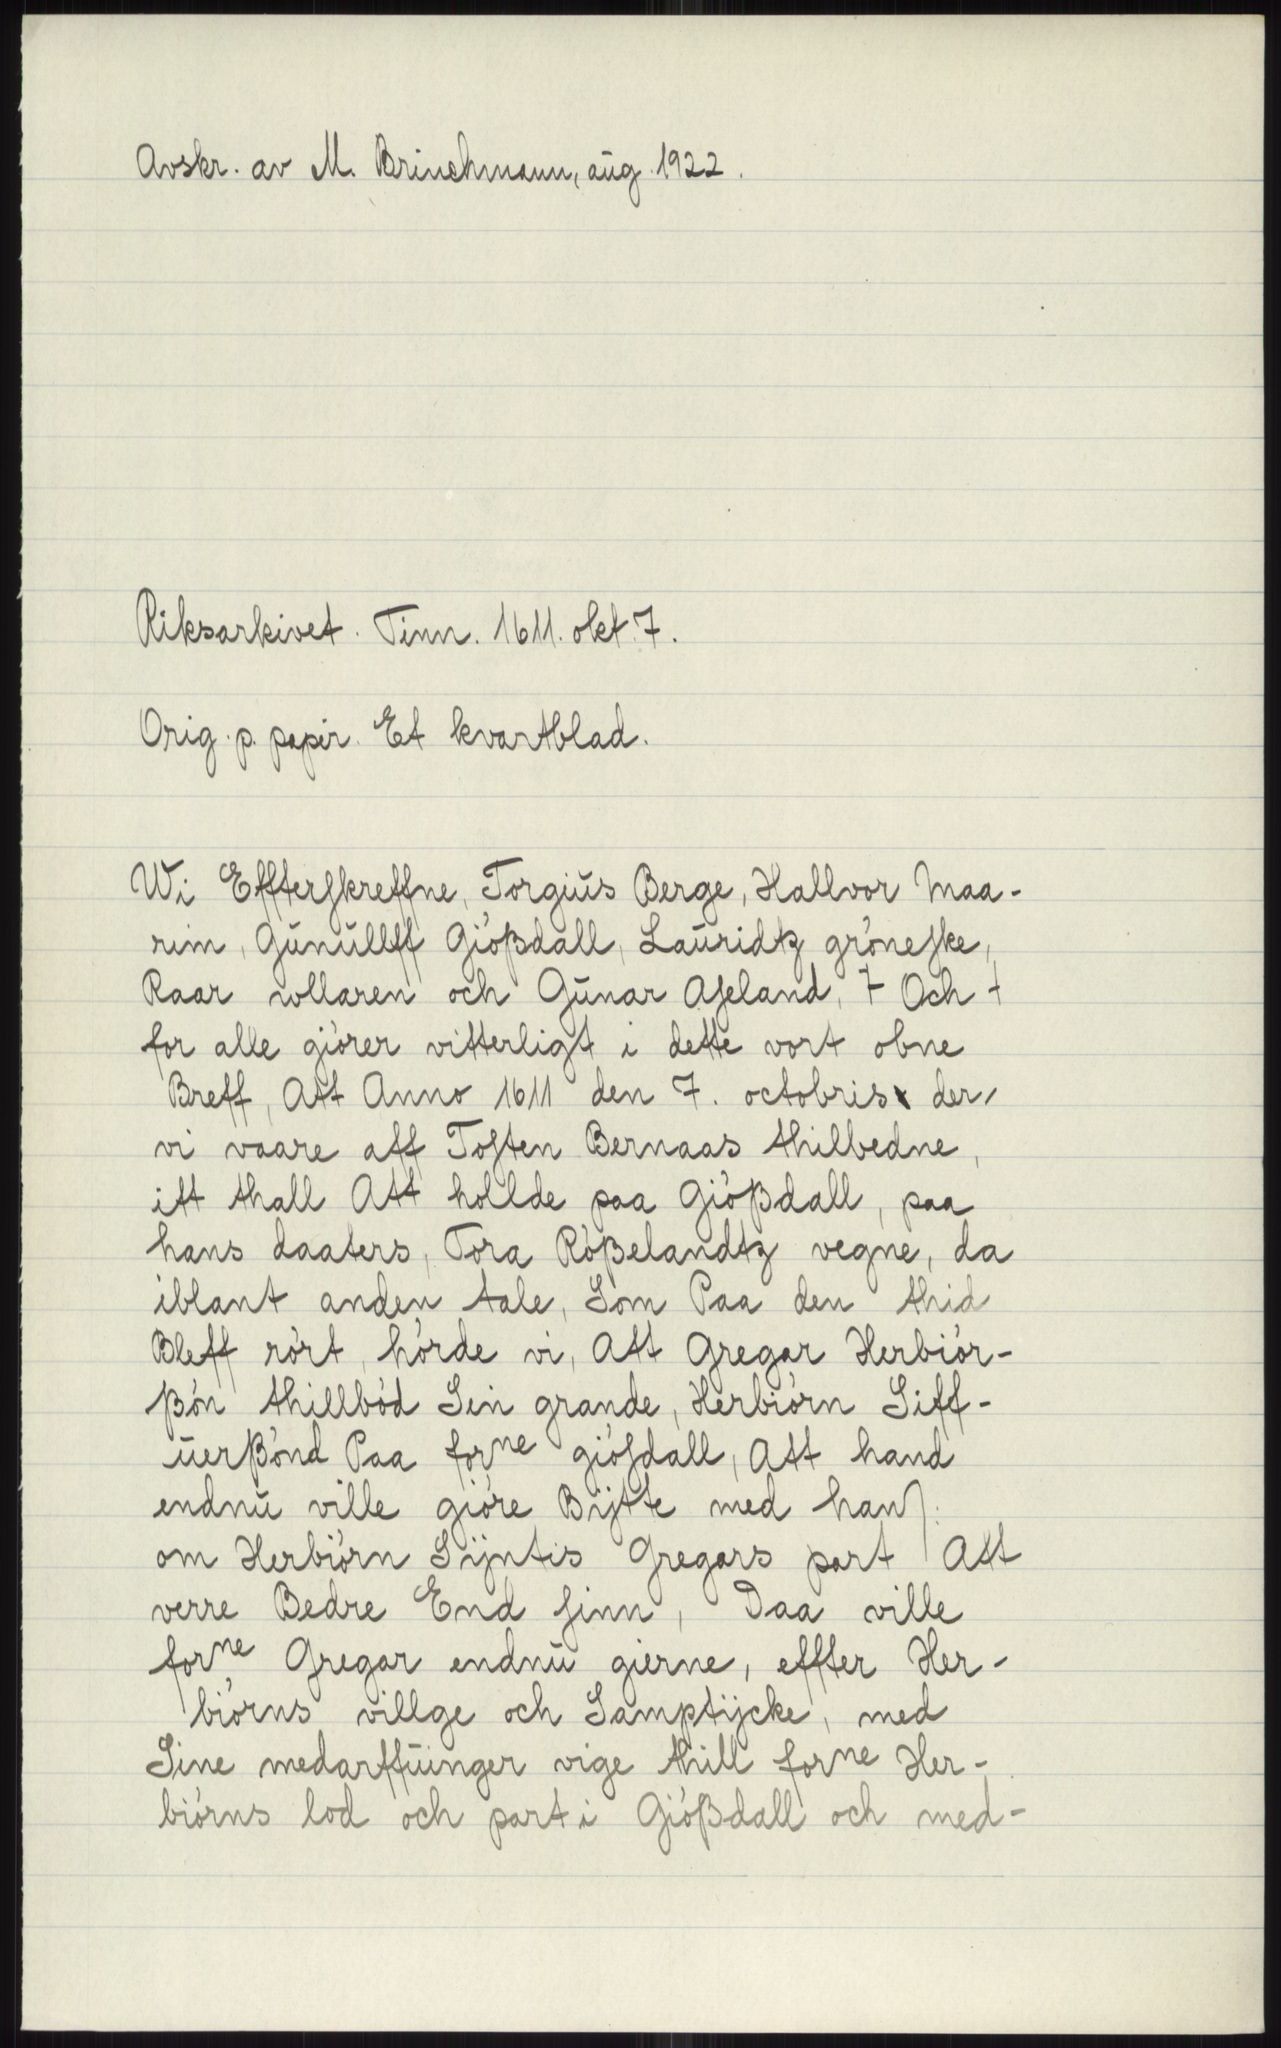 Avskr. av M. Brinchmann, aug. 1922.
Riksarkivet. Tinn. 1611. okt. 7.
Orig. p. papir. Et kvartblad.
Wi Effterskreffne, Torgius Berge, Hallvor Maa-
rim, Gunullff Giøßdall, Lauridtz grøneske,
Raar wllaren och Gunar Aseland, + Och +
for alle giører vitterligt i dette vort obne
Breff, Att Anno 1611 den 7. octobris der,
vi vaare aff Tosten Bernaas thilbedne,
itt thall Att hollde paa Giøßdall, paa
hans daaters, Tora Røßelandtz vegne, da
iblant anden tale, Som Paa den thid
Bleff rørt, hørde vi, Att Gregar Herbiør-
ßøn thillbød Sin grande, Herbiørn Siff-
uerßønd Paa forne giøsdall, Att hand
endnu ville giøre Bytte med hans.
om Herbiørn Syntis Gregars part Att
verre Bedre End sinn, Daa ville
forne Gregar endnu gierne, effter Her-
biørns villge och Samptycke, med
Sine medarffuinger vige thill forne Her-
biørns lod och part i Giøßdall och med-